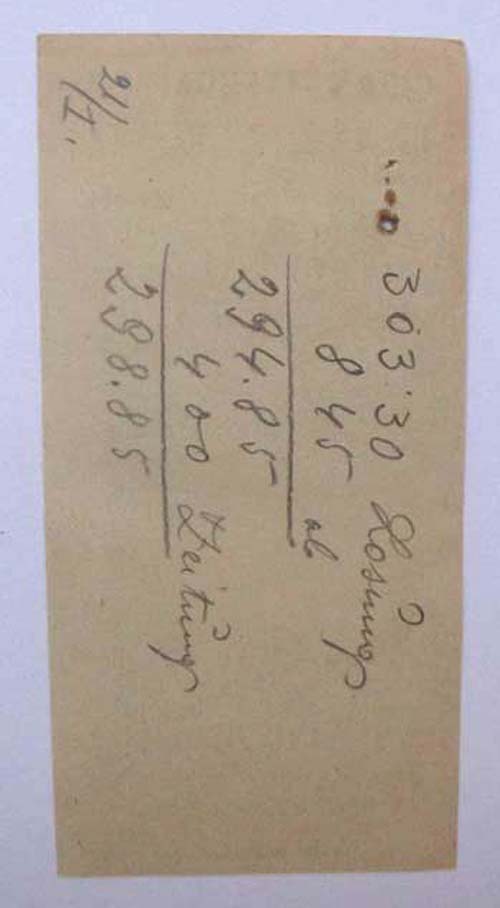 21/I.
303.30 Losung
8 45 ab
294.85
4 00 Zeitung
298.85